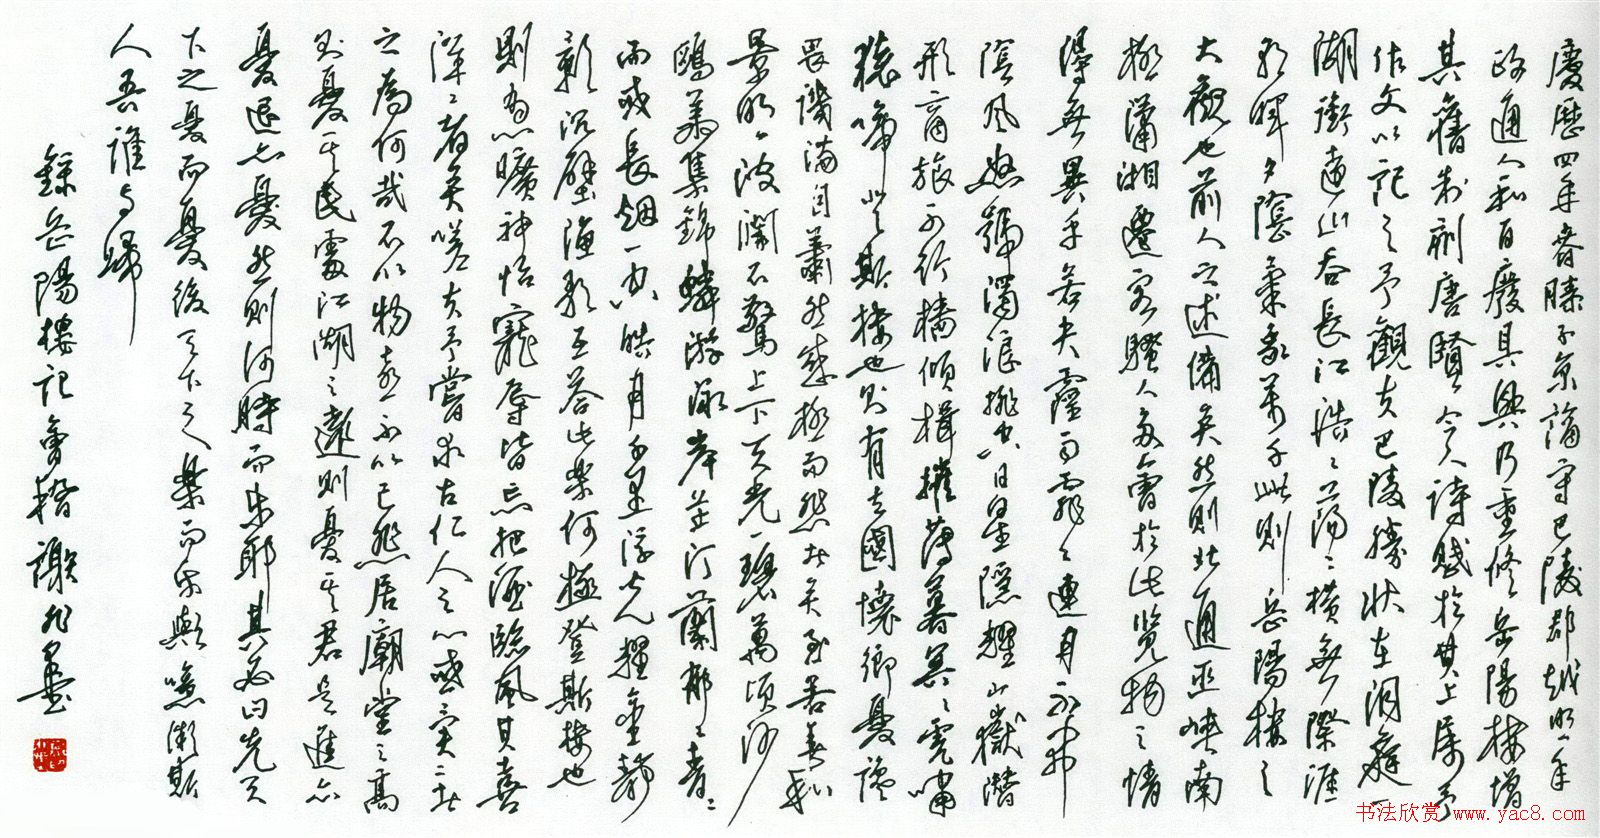 慶歷四年春滕子京謫守巴陵郡越明年
政通人和百廢具興乃重修岳陽樓增
其舊制刻唐賢今人詩賦於其上屬予
作文以記之予觀夫巴陵勝狀在洞庭一
湖銜遠山吞長江浩浩蕩蕩橫無際涯
朝暉夕陰氣象萬千此則岳陽樓之
大觀也前人之述備矣然則北通巫峽南
極瀟湘遷客騷人多會於此覽物之情
得無異乎若夫霪雨霏霏連月不開
陰風怒號濁浪排空日星隱耀山嶽潛
形商旅不行檣傾楫摧薄暮冥冥虎嘯
猿啼登斯樓也則有去國懷鄉憂讒
畏譏滿目蕭然感極而悲者矣至若春和
景明波瀾不驚上下天光一碧萬頃沙
鷗翔集錦鱗游泳岸芷汀蘭郁郁青青
而或長烟一空皓月千里浮光耀金靜
影沉璧漁歌互答此樂何極登斯樓也
則有心曠神怡寵辱皆忘把酒臨風其喜
洋洋者矣嗟夫予嘗求古仁人之心或異二者
之為何哉不以物喜不以己悲居廟堂之高
則憂其民處江湖之遠則憂其君是進亦
憂退亦憂然則何時而樂耶其必曰先天
下之憂而憂後天下之樂而樂歟噫微斯
人吾誰與歸
錄岳陽樓記會稽謝非墨
书法欣赏 www.yac8.com